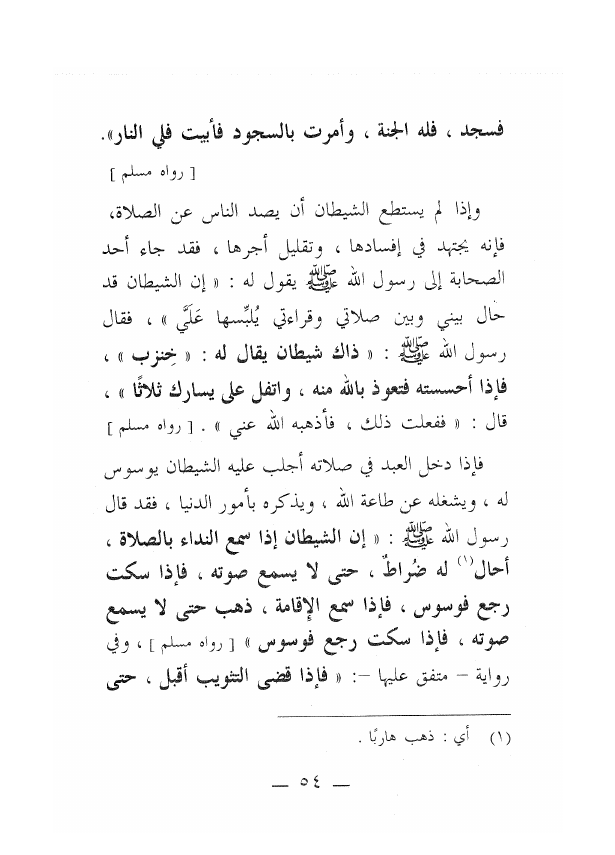 فسجد ، فله الجنة ، وأمرت بالسجود فأبيت فلي النار».
[ رواه مسلم ]
وإذا لم يستطع الشيطان أن يصد الناس عن الصلاة،
فإنه يجتهد في إفسادها ، وتقليل أجرها ، فقد جاء أحد
الصحابة إلى رسول الله ﷺ يقول له : « إن الشيطان قد
حال بيني وبين صلاتي وقراءتي يُلبِّسها عَلَيَّ » ، فقال
رسول الله ﷺ : « ذاك شيطان يقال له : « خِنزب » ،
فإذا أحسسته فتعوذ بالله منه ، واتفل على يسارك ثلاثًا » ،
قال : « ففعلت ذلك ، فأذهبه الله عني » . [ رواه مسلم ]
فإذا دخل العبد في صلاته أجلب عليه الشيطان يوسوس
له ، ويشغله عن طاعة الله ، ويذكره بأمور الدنيا ، فقد قال
رسول الله ﷺ : « إن الشيطان إذا سمع النداء بالصلاة ،
أحال(١) له ضُراطٌ ، حتى لا يسمع صوته ، فإذا سكت
رجع فوسوس ، فإذا سمع الإِقامة ، ذهب حتى لا يسمع
صوته ، فإذا سكت رجع فوسوس » [ رواه مسلم ] ، وفي
رواية – متفق عليها –: « فإذا قضى التثويب أقبل ، حتى
(١) أي : ذهب هاربًا .
— ٥٤ —